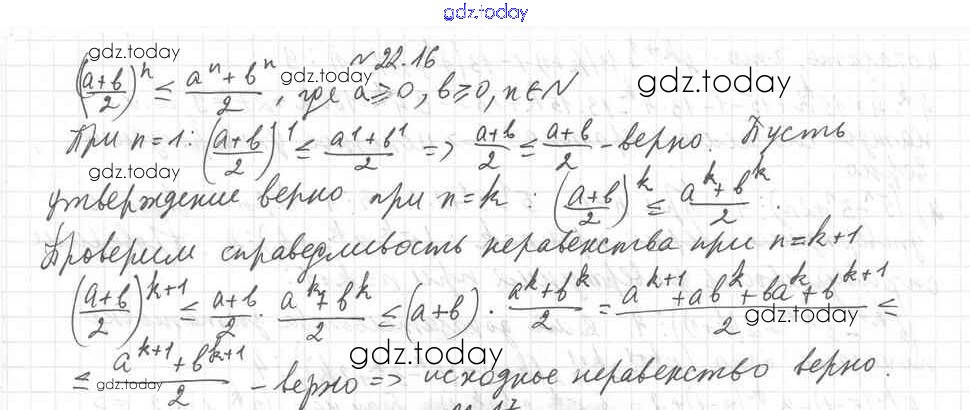 gdz.today
№22.16
((a+b)/2)^n ≤ (a^n+b^n)/2, где a≥0, b≥0, n∈N
gdz.today gdz.today gdz.today
При n=1: ((a+b)/2)^1 ≤ (a^1+b^1)/2 => (a+b)/2 ≤ (a+b)/2 - верно. Пусть
gdz.today
утверждение верно при n=k: ((a+b)/2)^k ≤ (a^k+b^k)/2.
Проверим справедливость неравенства при n=k+1
((a+b)/2)^(k+1) ≤ (a+b)/2 · (a^k+b^k)/2 ≤ (a+b) · (a^k+b^k)/2 = (a^(k+1)+ab^k+ba^k+b^(k+1))/2 ≤
gdz.today
≤ (a^(k+1)+b^(k+1))/2 - верно => исходное неравенство верно.
gdz.today gdz.today